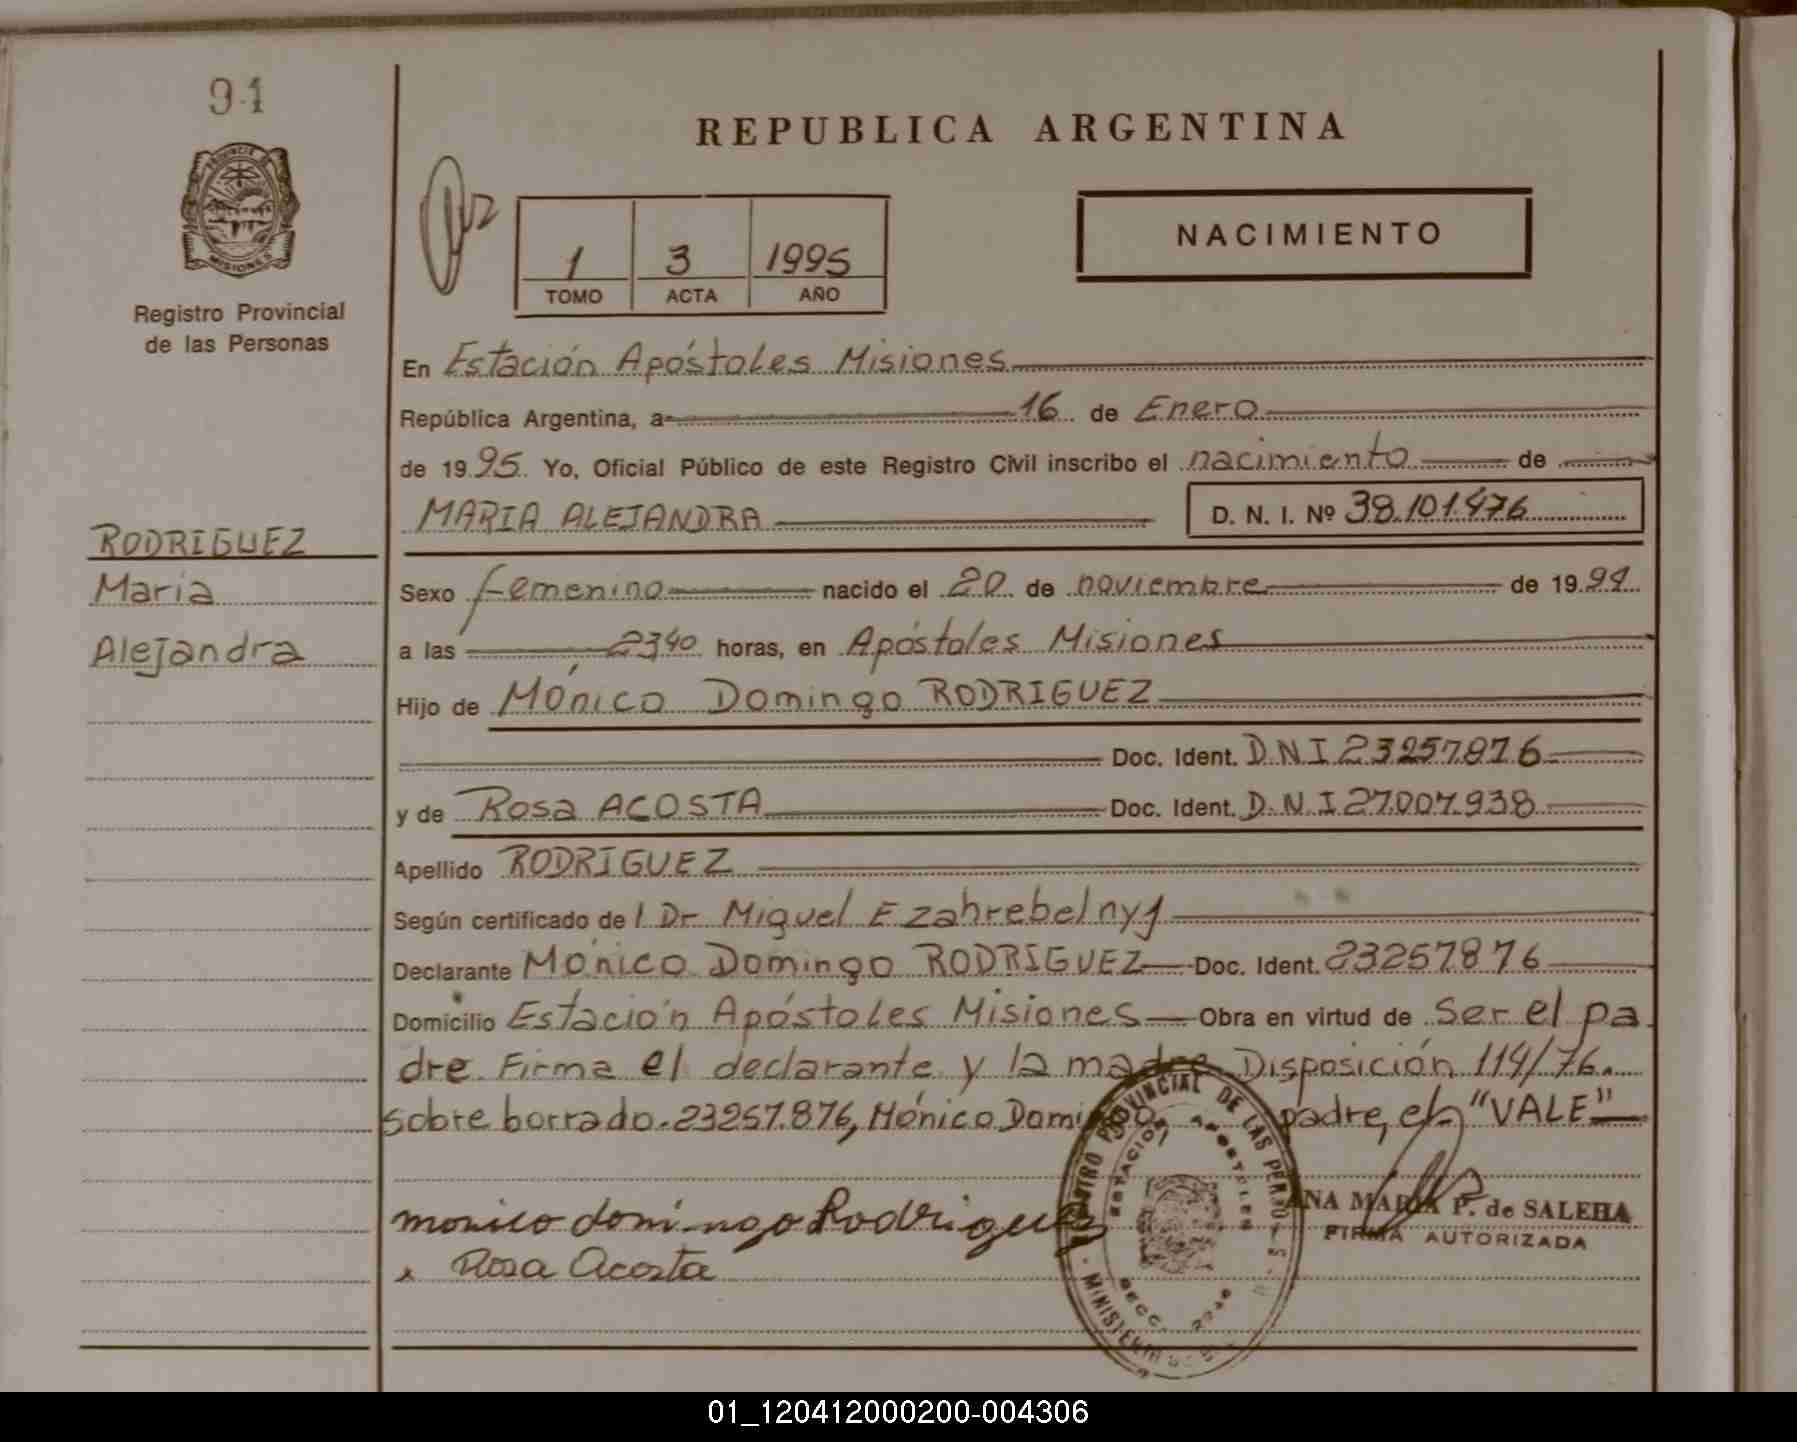 91
PROVINCIA DE
MISIONES
Registro Provincial
de las Personas
RODRIGUEZ
Maria
Alejandra
REPUBLICA ARGENTINA
1 3 1995
TOMO ACTA AÑO
NACIMIENTO
En Estación Apóstoles Misiones
República Argentina, a 16 de Enero
de 1995. Yo, Oficial Público de este Registro Civil inscribo el nacimiento de
MARIA ALEJANDRA D. N. I. Nº 38.101.476
Sexo femenino nacido el 20 de noviembre de 1994
a las 23,40 horas, en Apóstoles Misiones
Hijo de Mónico Domingo RODRIGUEZ
Doc. Ident. D.N.I 23257.876
y de Rosa ACOSTA Doc. Ident. D.N.I 27.007.938
Apellido RODRIGUEZ
Según certificado de l Dr Miguel Ezahrebelnyj
Declarante Mónico Domingo RODRIGUEZ Doc. Ident. 23257876
Domicilio Estación Apóstoles Misiones Obra en virtud de ser el pa
dre. Firma el declarante y la madre Disposición 114/76.
sobre borrado. 23257.876, Mónico Domingo padre, el "VALE"
monico domingo Rodriguez
Rosa Acosta
REGISTRO PROVINCIAL DE LAS PERSONAS
ESTACION APOSTOLES
SECC.
ANA MARIA P. de SALEHA
FIRMA AUTORIZADA
01_120412000200-004306